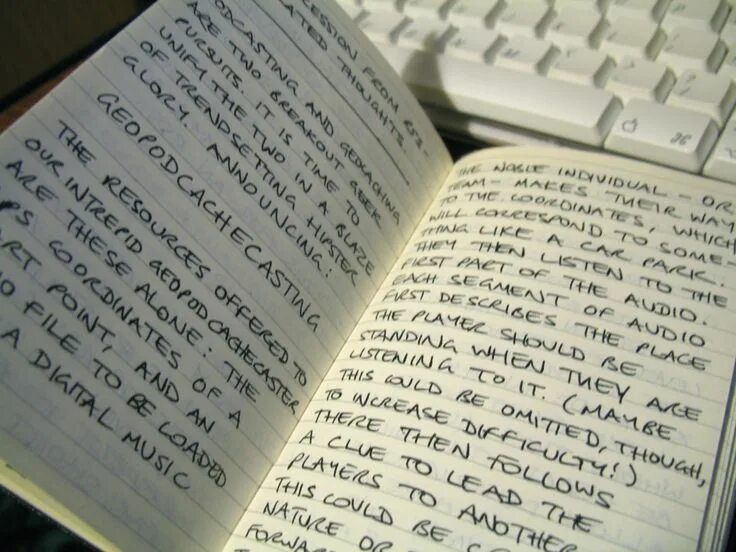 CESSION FROM RSI-
ATED THOUGHTS.
ODCASTING AND GEOCACHING
ARE TWO BREAKOUT GEEK
PURSUITS. IT IS TIME TO
UNIFY THE TWO IN A BLAZE
OF TRENDSETTING HIPSTER
GLORY. ANNOUNCING:
GEOPODCACHECASTING
THE RESOURCES OFFERED TO
OUR INTREPID GEOPODCACHECASTER
ARE THESE ALONE: THE
PS COORDINATES OF A
ART POINT, AND AN
IO FILE TO BE LOADED
A DIGITAL MUSIC
THE NOBLE INDIVIDUAL - OR
TEAM - MAKES THEIR WAY
TO THE COORDINATES, WHICH
WILL CORRESPOND TO SOME-
THING LIKE A CAR PARK.
THEY THEN LISTEN TO THE
FIRST PART OF THE AUDIO.
EACH SEGMENT OF AUDIO
FIRST DESCRIBES THE PLACE
THE PLAYER SHOULD BE
STANDING WHEN THEY ARE
LISTENING TO IT. (MAYBE
THIS COULD BE OMITTED, THOUGH,
TO INCREASE DIFFICULTY!)
THERE THEN FOLLOWS
A CLUE TO LEAD THE
PLAYERS TO ANOTHER
THIS COULD BE
NATURE OR
FORWA